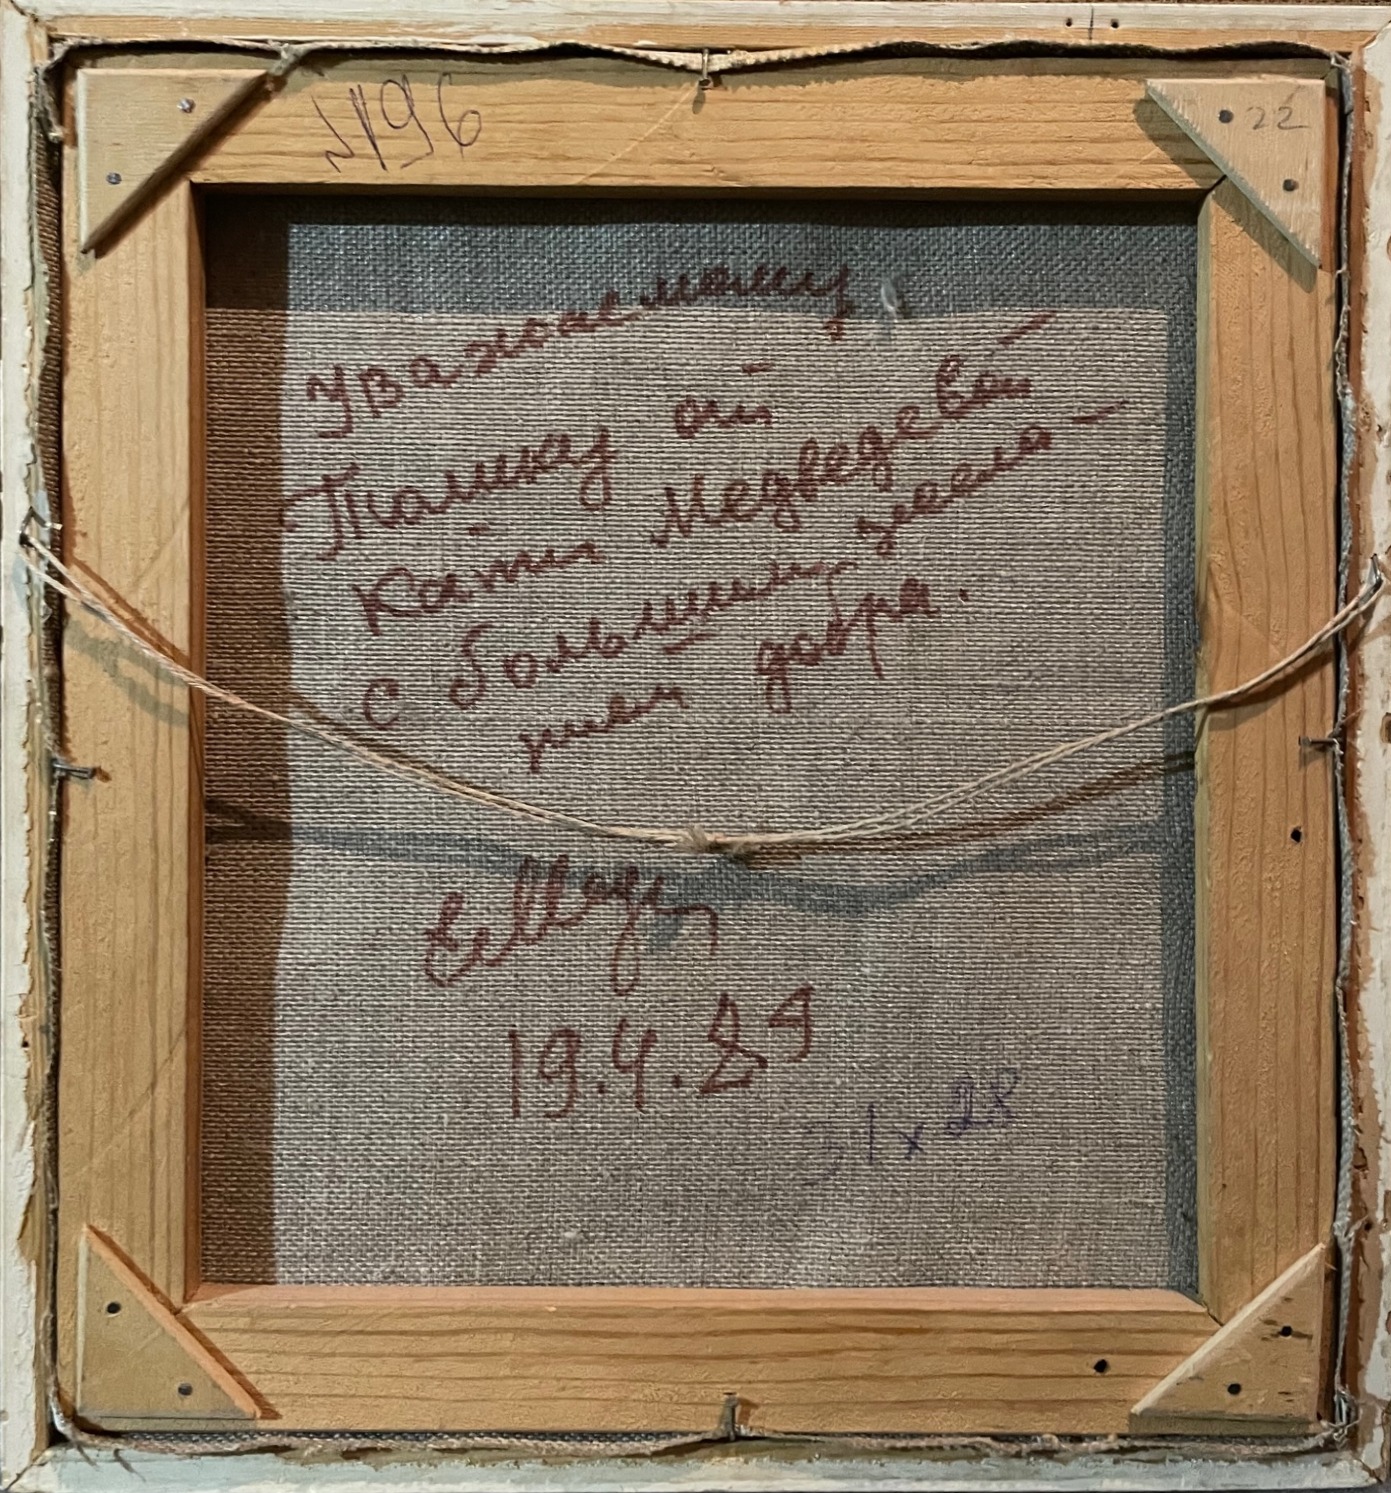 N196
22
Уважаемому
от
Кати Медведевой
с большим жела-
нием добра.
ЕМедв
19.4.89
31x28